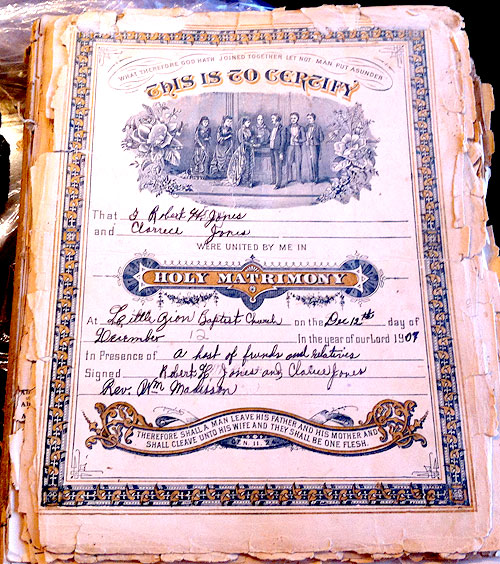 WHAT THEREFORE GOD HATH JOINED TOGETHER LET NOT MAN PUT ASUNDER
THIS IS TO CERTIFY
That I Robert H. Jones
and Clarrece Jones
WERE UNITED BY ME IN
HOLY MATRIMONY
At Little Zion Baptist Church on the Dec 12th day of
December 12 In the year of our Lord 1907
In Presence of a host of friends and relatives
Signed Robert H Jones and Clarice Jones
Rev. Wm Madisson
THEREFORE SHALL A MAN LEAVE HIS FATHER AND HIS MOTHER AND
SHALL CLEAVE UNTO HIS WIFE AND THEY SHALL BE ONE FLESH.